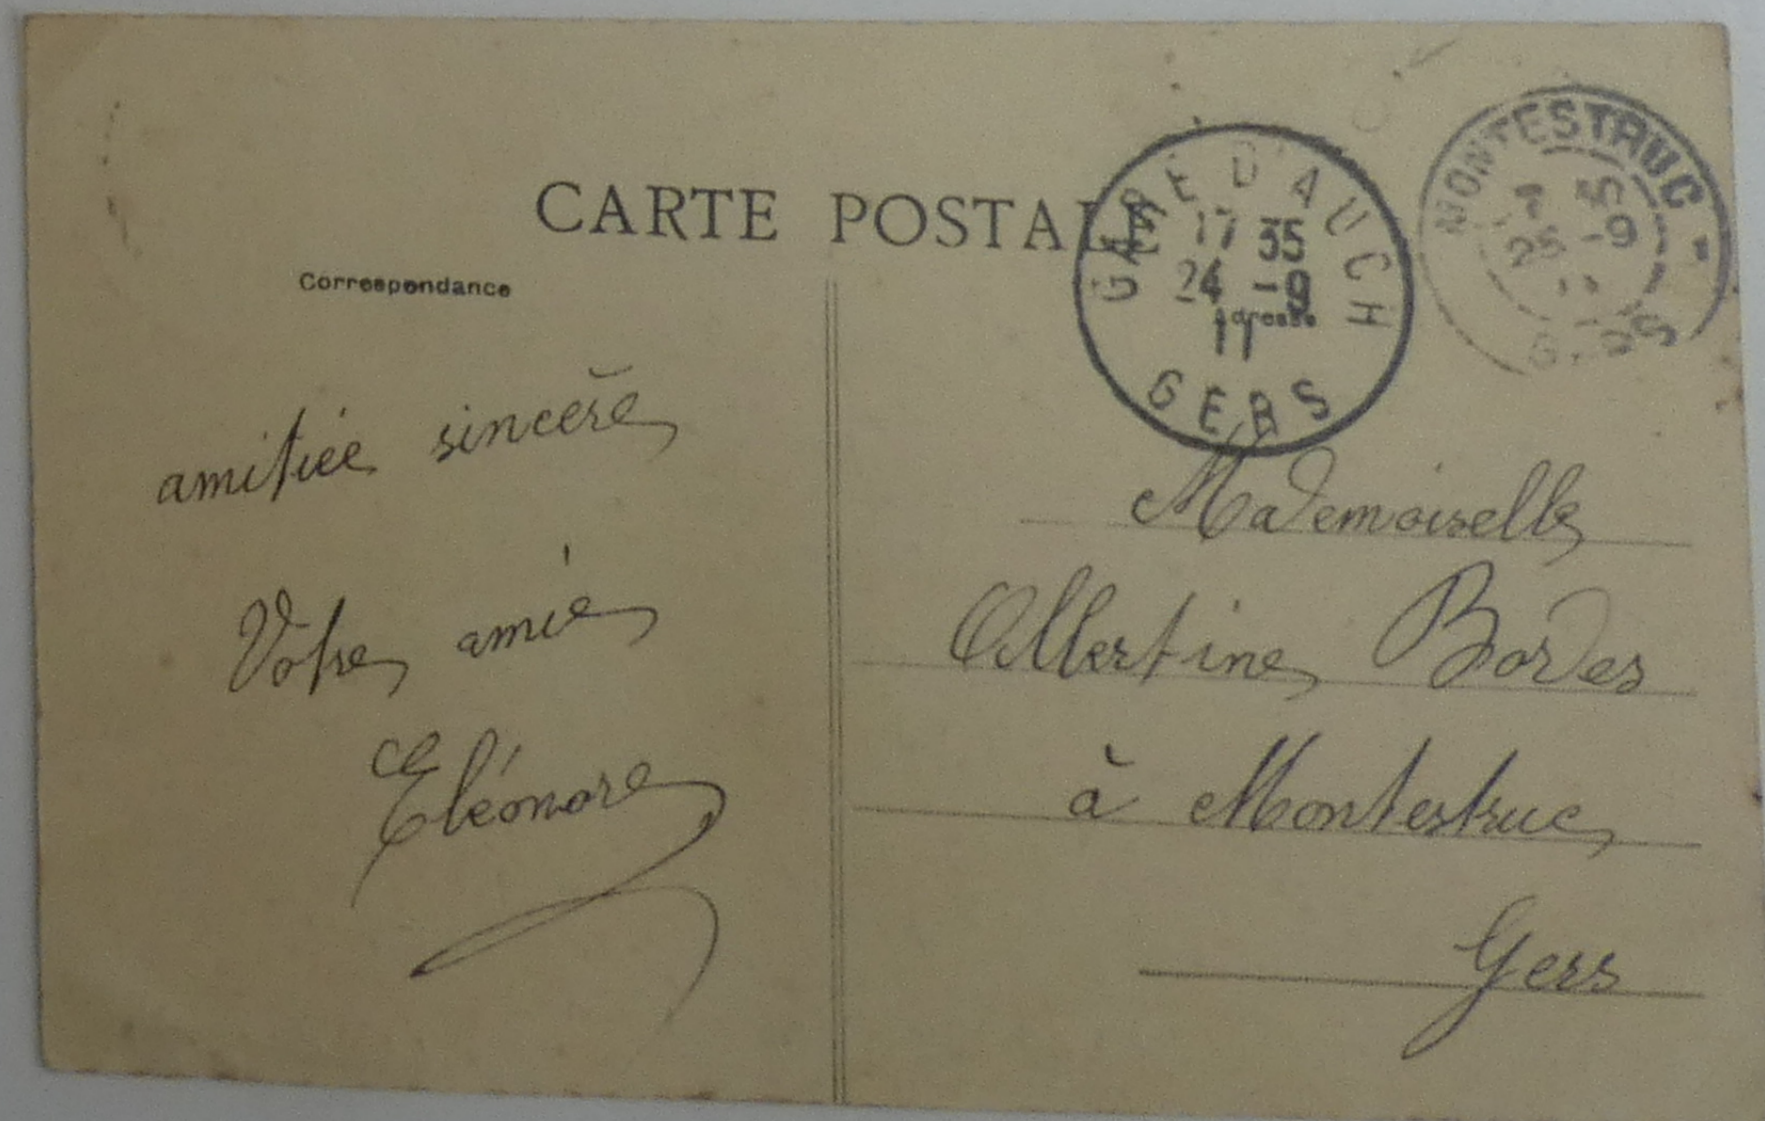 CARTE POSTALE
Correspondance
Adresse
GARE D'AUCH
17 35
24 -9
11
GERS
MONTESTRUC
25 -9
11
GERS
amitiée sincère
Votre amie
Eléonore
Mademoiselle
Albertine Bordes
à Montestruc
Gers